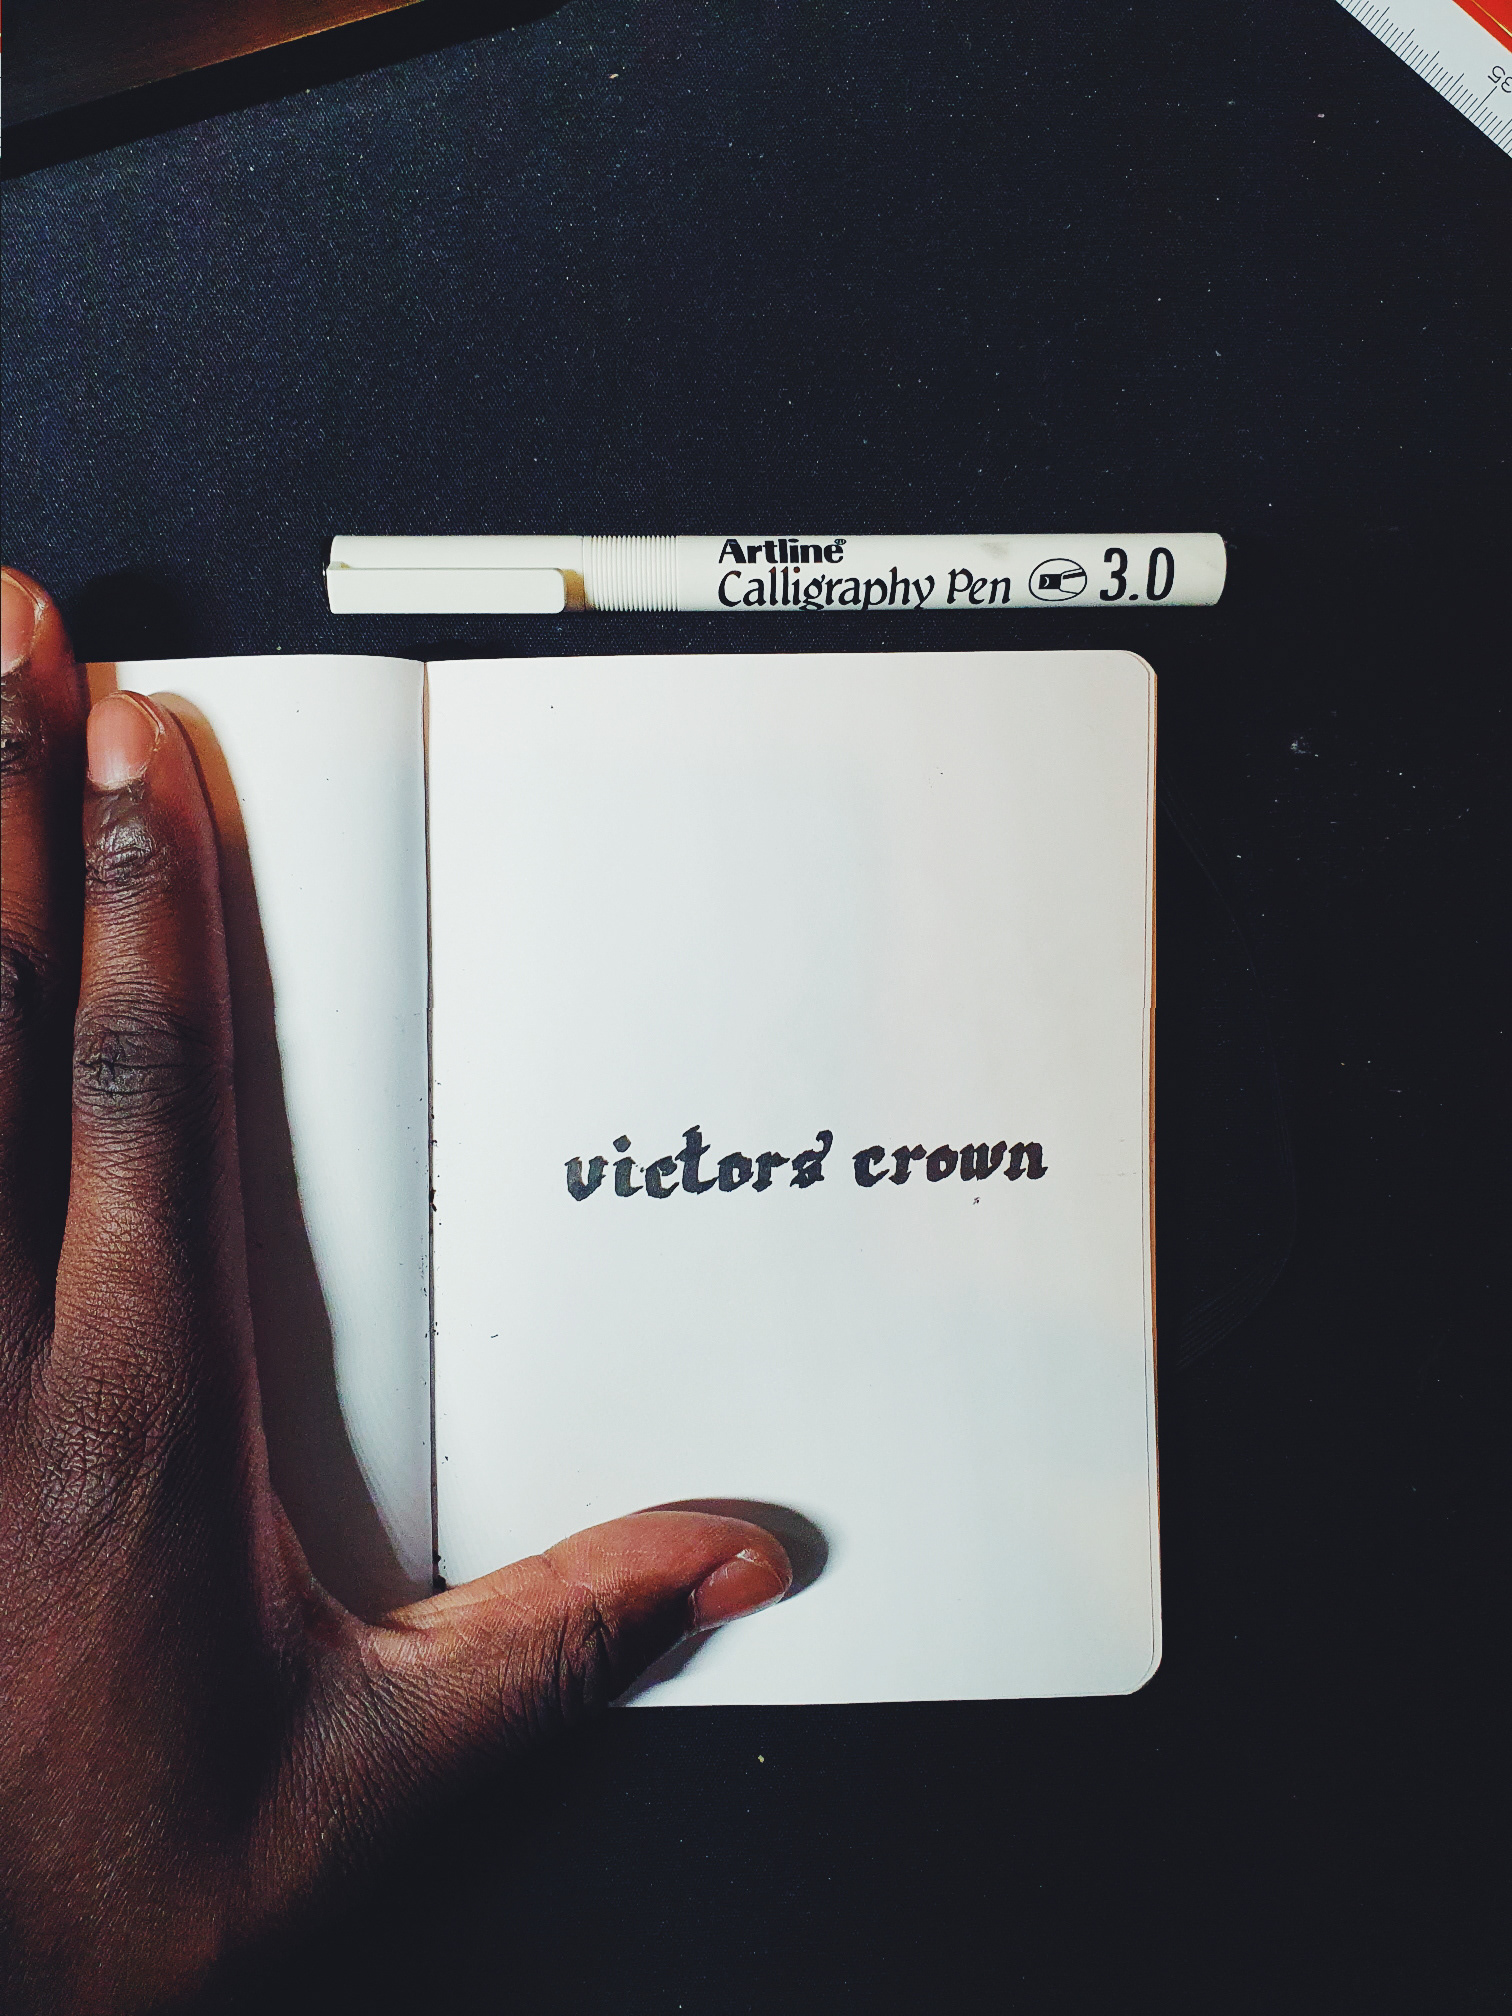 35
Artline®
Calligraphy Pen 3.0
victors' crown